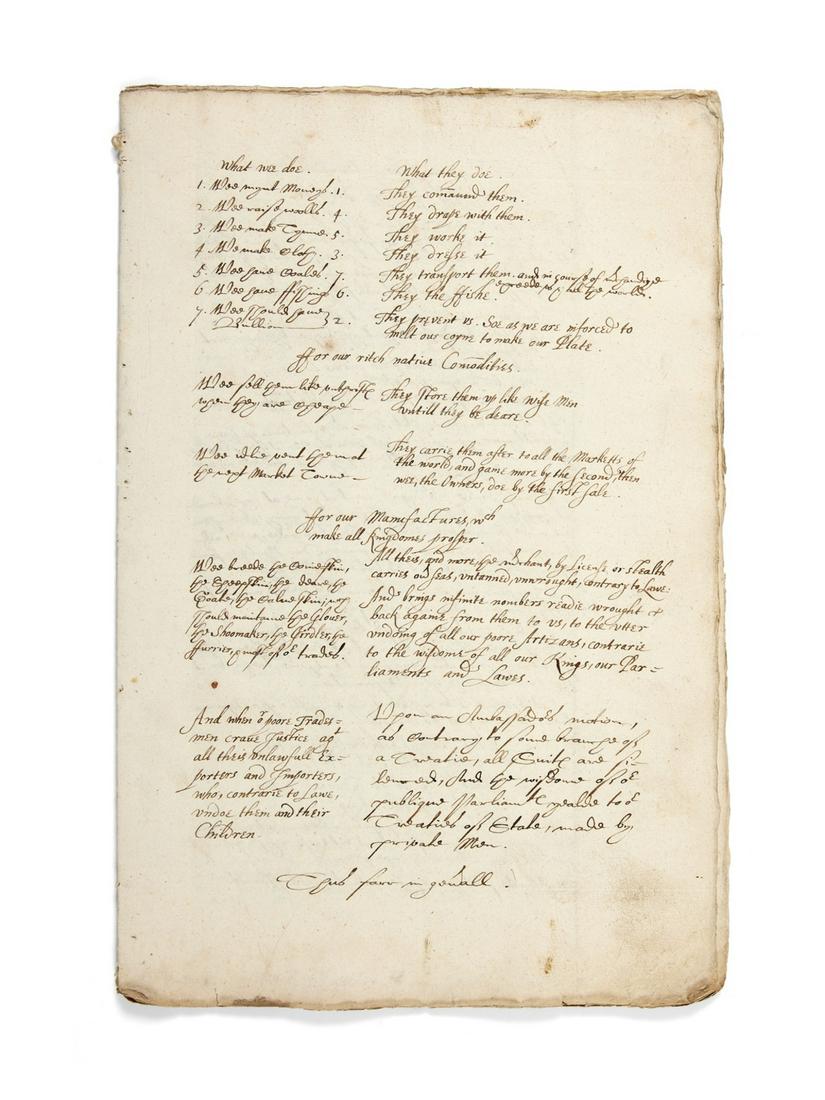 What wee doe. What they doe.
1. Wee mynt Moneys. 1. They comaund them.
2. Wee raise woolls. 4. They drape with them.
3. Wee make Tynne. 5. They worke it.
4 Wee make Cloth. 3. They dresse it.
5. Wee have Coales. 7. They transport them. and in course of
6. Wee have ffishing 6. They the ffishe. all the worlde.
7. Wee should have
Bullion 2. They prevent vs. Soe as we are inforced to
melt our coyne to make our Plate.
ffor our ritch native Comodities.
Wee sell them like
when they are Cheape They store them vp like wise Men
untill they be deare.
Wee vent them at
the next Market Towne They carrie them after to all the Marketts of
the world, and game more by the Second, then
wee, the Owners, doe by the first sale.
ffor our Manufactures, wch
make all Kingdomes prosper.
Wee breede the Conieskin,
the Sheepskin, the deare, the
Goate, the Calveskin, wch
should maintaine the Glover,
the Shoomaker, the Girdler, the
ffurrier, & most of or trades.
All theis, and more, the Mrchant, by License or stealth
carries our seas, untanned, vnwrought, contrary to Lawe
And brings infinite nombers readie wrought &
back againe from them to vs, to the vtter
vndoing of all our poore Artezans, contrarie
to the wisdome of all our Kings, our Par=
liaments and Lawes.
And when or poore Trades=
men crave Justice agt
all theis vnlawfull Ex=
porters and Importers,
who, contrarie to Lawe,
vndoe them and their
Children.
Vpon an Ambassadors motion,
as contrary to some braunche of
a Treatie, all Suits are si=
lenced, And the wisdome of or
publique Parliamts yealde to or
Treaties of State, made by
private Men.
Thus farr in gen'all.